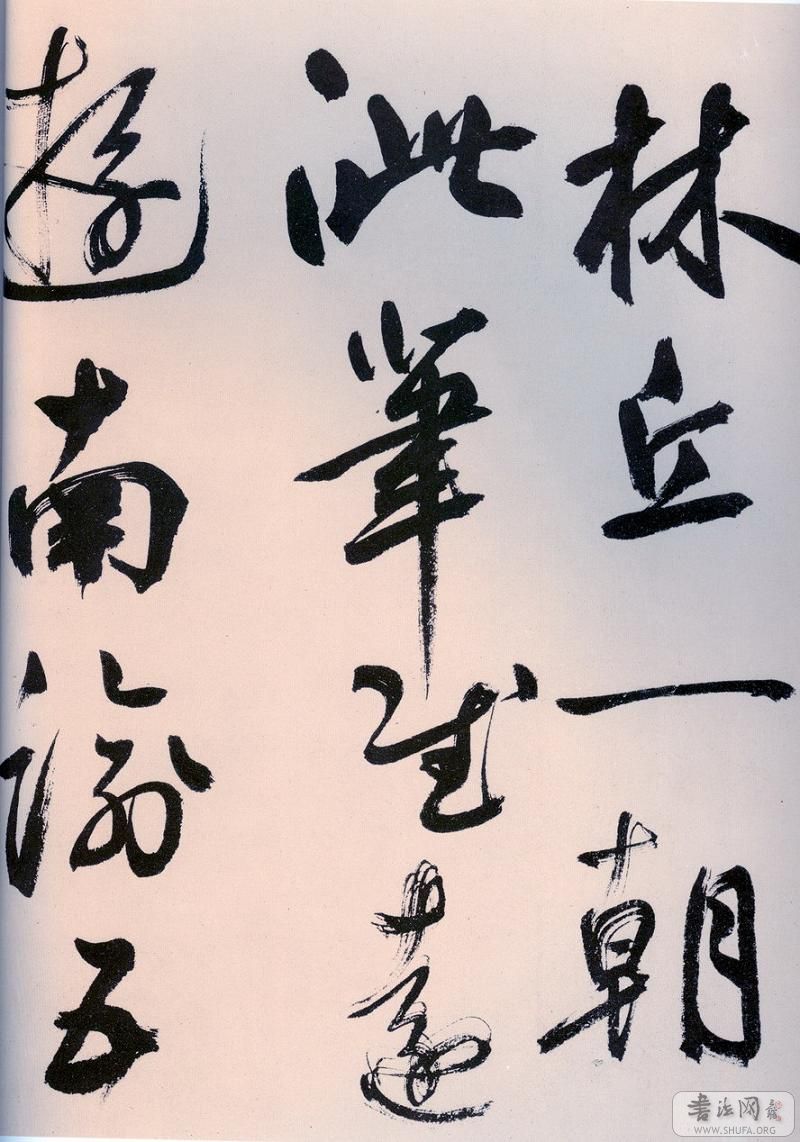 林丘一朝
泚筆賦遠
遊南五
書法网
WWW.SHUFA.ORG